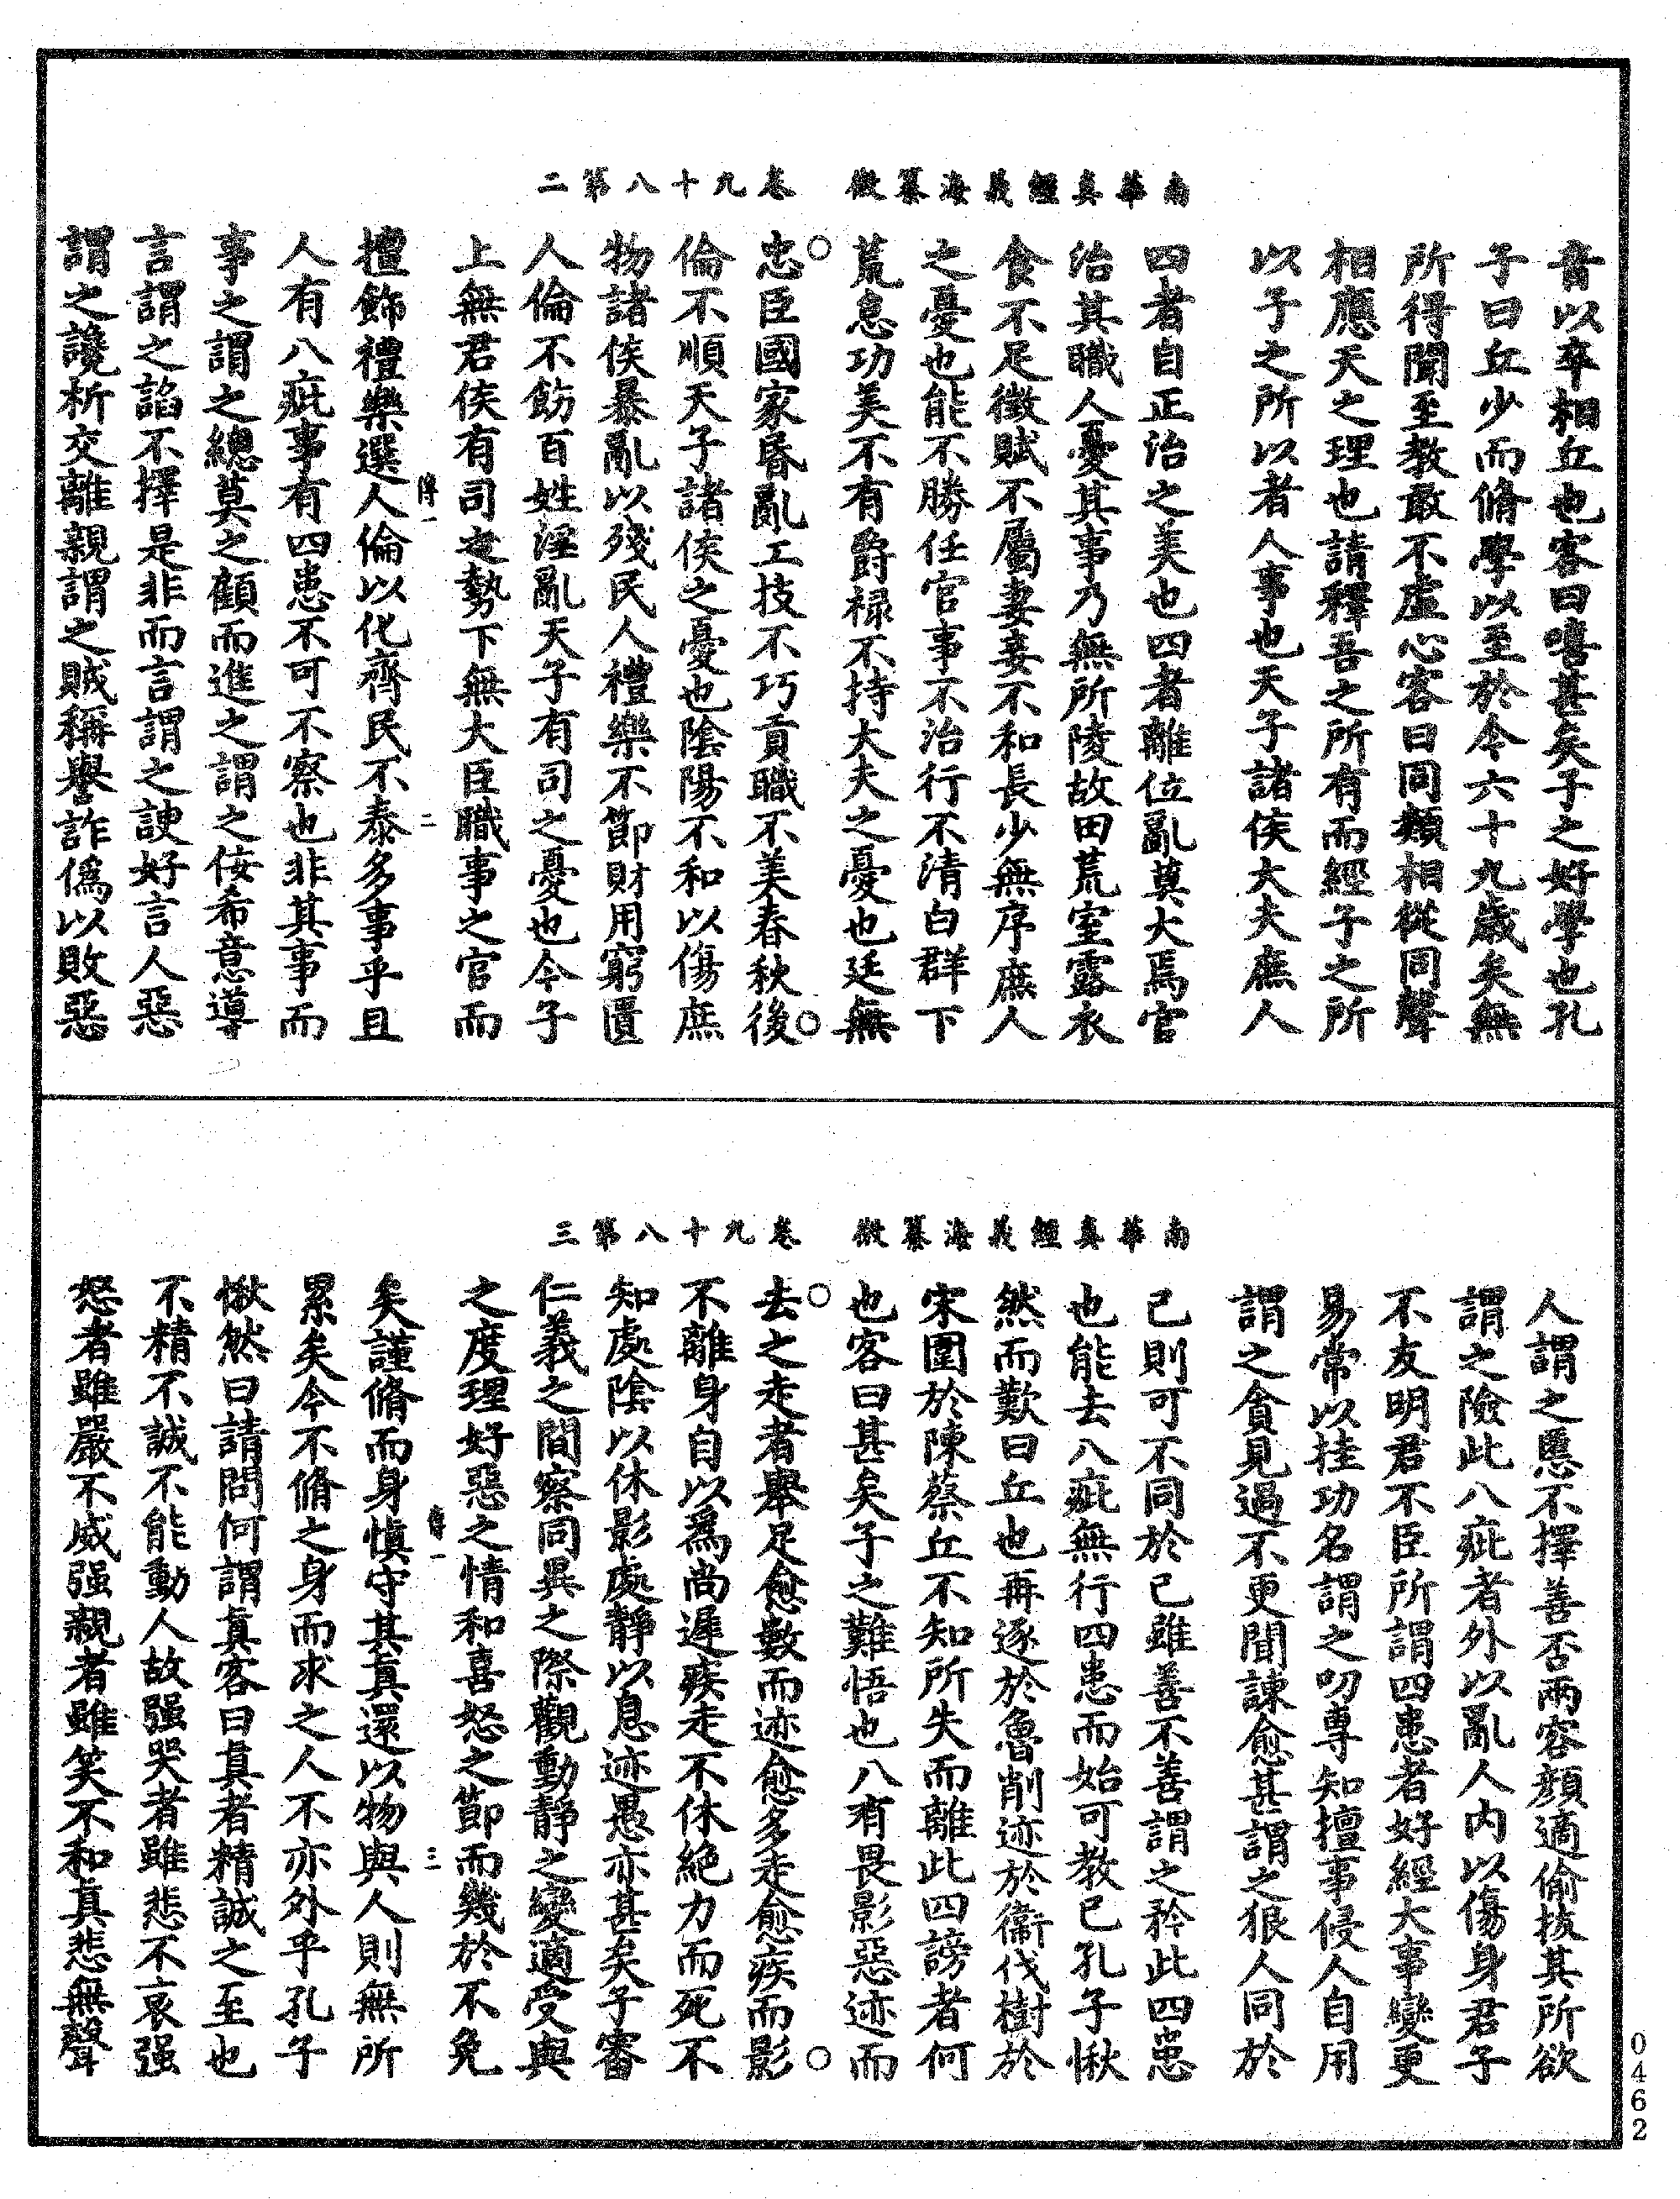 南華真經義海纂微　卷九十八第二
音以卒相丘也客曰嘻甚矣子之好學也孔
子曰丘少而脩學以至於今六十九歲矣無
所得聞至教敢不虛心客曰同類相從同聲
相應天之理也請釋吾之所有而經子之所
以子之所以者人事也天子諸侯大夫庶人
四者自正治之美也四者離位亂莫大焉官
治其職人憂其事乃無所陵故田荒室露衣
食不足徵賦不屬妻妾不和長少無序庶人
之憂也能不勝任官事不治行不清白群下
荒怠功美不有爵禄不持大夫之憂也廷無
忠臣國家昏亂工技不巧貢職不美春秋後
倫不順天子諸侯之憂也陰陽不和以傷庶
物諸侯暴亂以殘民人禮樂不節財用窮匱
人倫不飭百姓淫亂天子有司之憂也今子
上無君侯有司之勢下無大臣職事之官而
傳一　二
擅飾禮樂選人倫以化齊民不泰多事乎且
人有八疵事有四患不可不察也非其事而
事之謂之總莫之顧而進之謂之佞希意導
言謂之諂不擇是非而言謂之諛好言人惡
謂之讒析交離親謂之賊稱譽詐偽以敗惡
南華真經義海纂微　卷九十八第三
人謂之慝不擇善否兩容顏適偷拔其所欲
謂之險此八疵者外以亂人內以傷身君子
不友明君不臣所謂四患者好經大事變更
易常以挂功名謂之叨專知擅事侵人自用
謂之貪見過不更聞諫愈甚謂之狠人同於
己則可不同於己雖善不善謂之矜此四患
也能去八疵無行四患而始可教已孔子愀
然而歎曰丘也再逐於魯削迹於衛伐樹於
宋圍於陳蔡丘不知所失而離此四謗者何
也客曰甚矣子之難悟也人有畏影惡迹而
去之走者舉足愈數而迹愈多走愈疾而影
不離身自以爲尚遲疾走不休絶力而死不
知處陰以休影處靜以息迹愚亦甚矣子審
仁義之間察同異之際觀動靜之變適受與
之度理好惡之情和喜怒之節而幾於不免
傳一　三
矣謹脩而身慎守其真還以物與人則無所
累矣今不脩之身而求之人不亦外乎孔子
愀然曰請問何謂真客曰真者精誠之至也
不精不誠不能動人故强哭者雖悲不哀强
怒者雖嚴不威强親者雖笑不和真悲無聲
0462